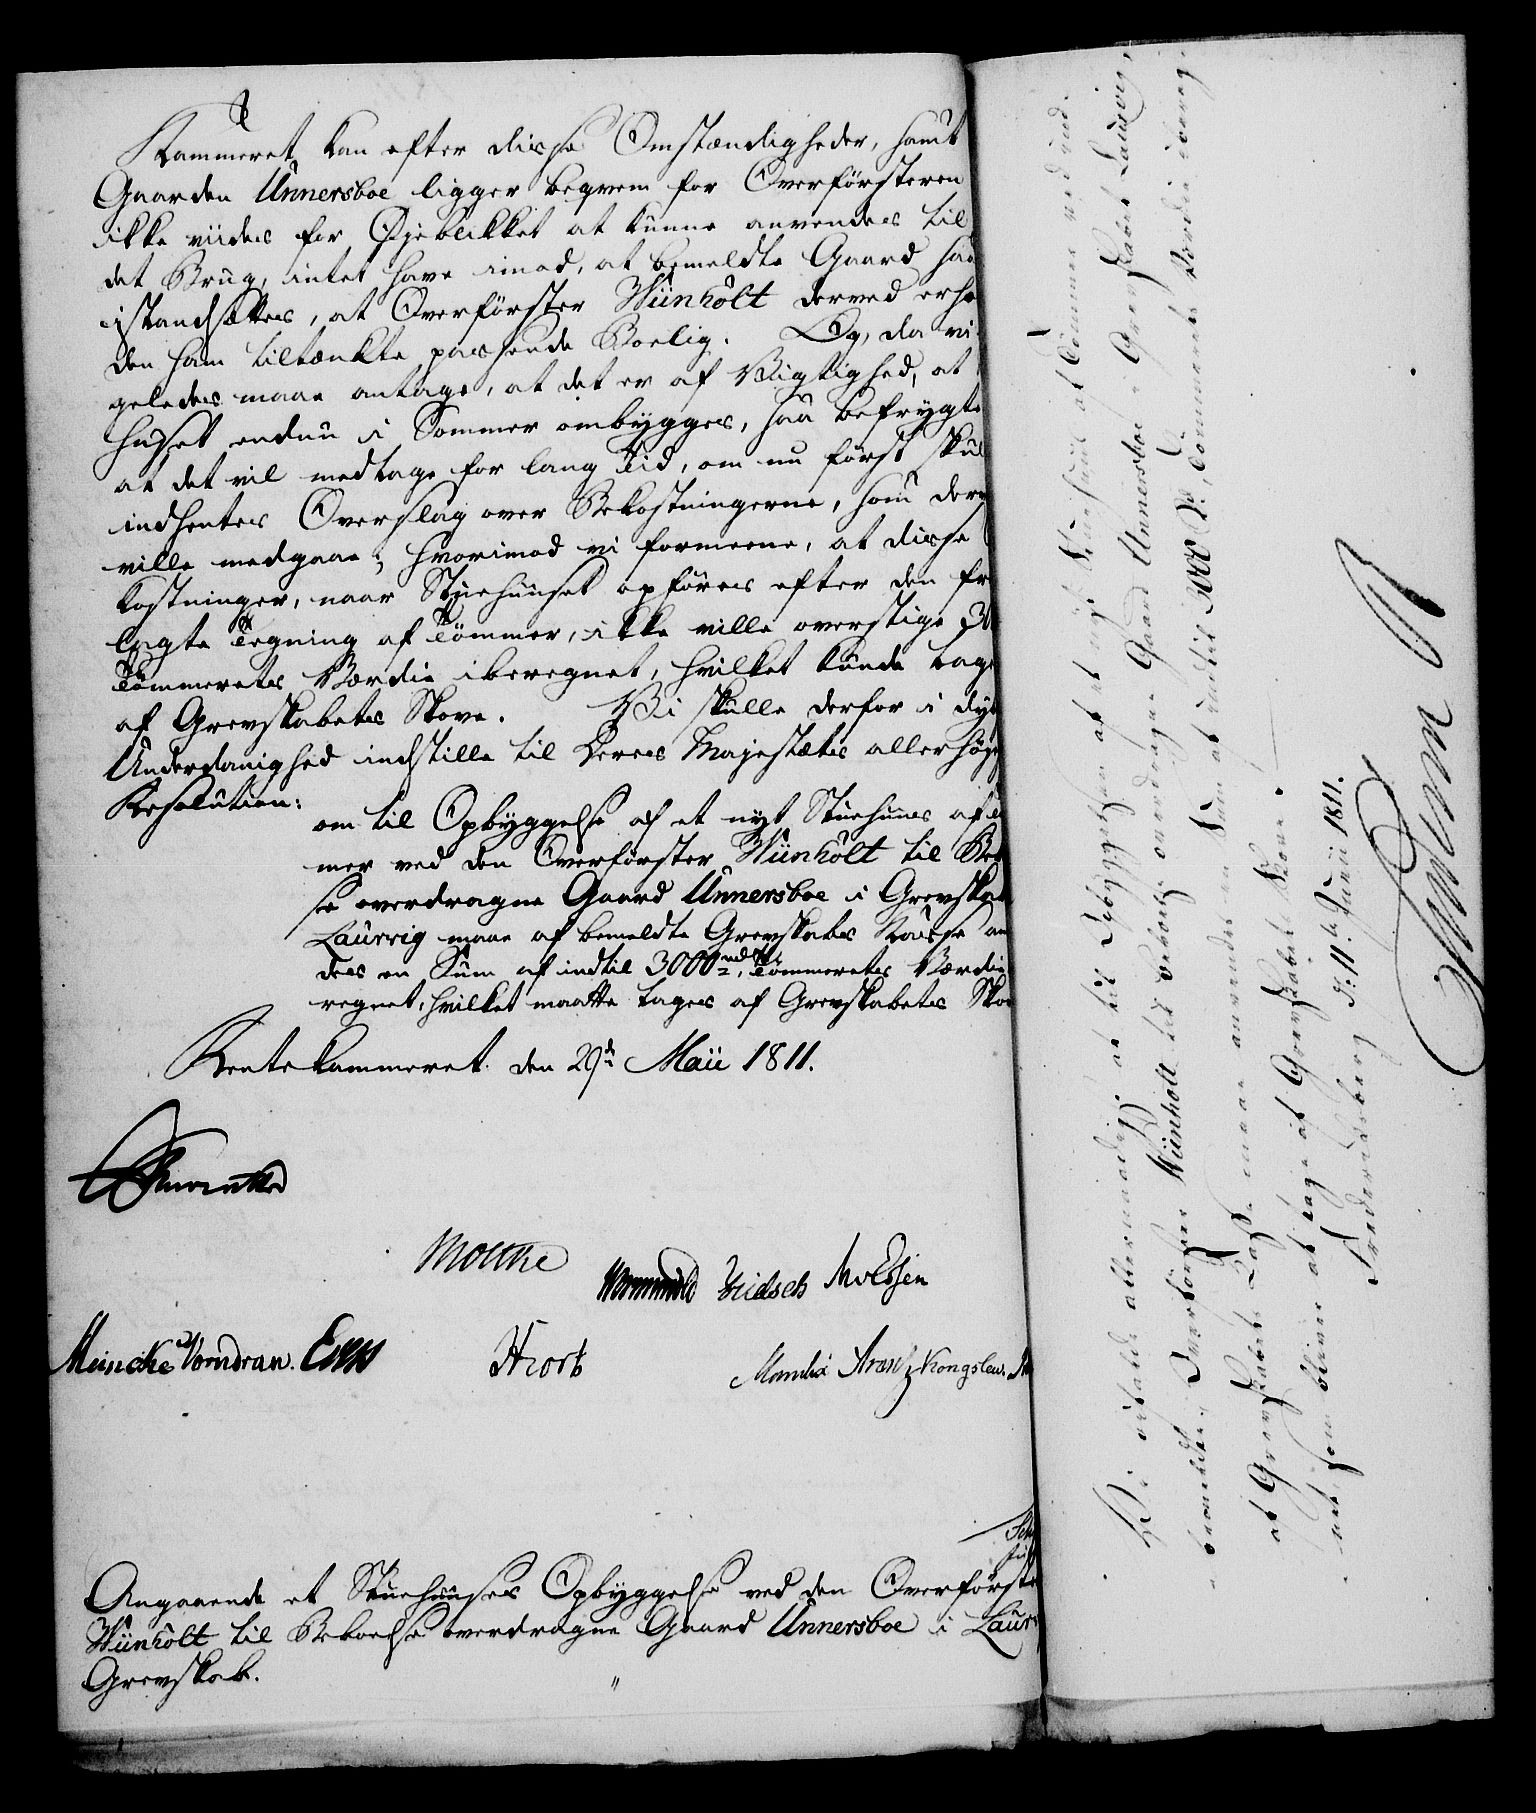 Kammeret kan efter disse Omstændigheder, samt
Gaarden Unnersboe ligger beqvem for Overförsteren
ikke viides for Øjeblikket at kunne anvendes til
det Brug, intet have imod, at bemeldte Gaard saa
istandsættes, at Overförster Wünholt derved erho
den ham tiltænkte passende Boelig. Og, da vi
geledes maae antage, at det er af Vigtighed, at
huset endnu i Sommer ombygges, saa befrygte
at det vil medtage for lang Tid, om nu först skul
indhentes Overslag over Bekostningerne, som der
ville medgaae, hvorimod vi formeene, at disse
kostninger, naar Stuehuuset opföres efter den fr
lagte Tegning af Tömmer, ikke ville overstige 30
Tömmerets Værdie iberegnet, hvilket kunde tag
af Grevskabets Skove. Vi skulle derfor i dyb
Underdanighed indstille til Deres Majestæts allerhöj
Resolution:
om til Opbyggelse af et nyt Stuehuus af
mer ved den Overförster Wünholt til Be
se overdragne Gaard Unnersboe i Grevskab
Laurvig maae af bemeldte Grevskabs Kasse an
des en Sum af indtil 3000 rd, Tömmerets Værdie
regnet, hvilket maatte tages af Grevskabets Sko
Rentekammeret den 29de Maii 1811.
Moltke
Wormskiold Hvidsch MvEssen
Meincke Vorndran. Evers Hiort Manthei Arentz Kongslew
Angaaende et Stuehuuses Opbyggelse ved den Overförste
Wünholt til Beboelse overdragne Gaard Unnersboe i Laur
Grevskab.
Vi ville allernaadigst, at til Opbyggelsen af et nyt Stuehuus af Tömmer ved den
bemeldte Overförster Wünholt til Beboelse overdragne Gaard Unnersboe i Grevskabet Laurvig,
af Grevskabets Casse maae anvendes en Sum af indtil 3000 Rd, Tömmerets Værdie ibereg-
net, som bliver at tage af Grevskabets Skove.
Frederiksberg d: 11te Junii 1811.
Frederik R